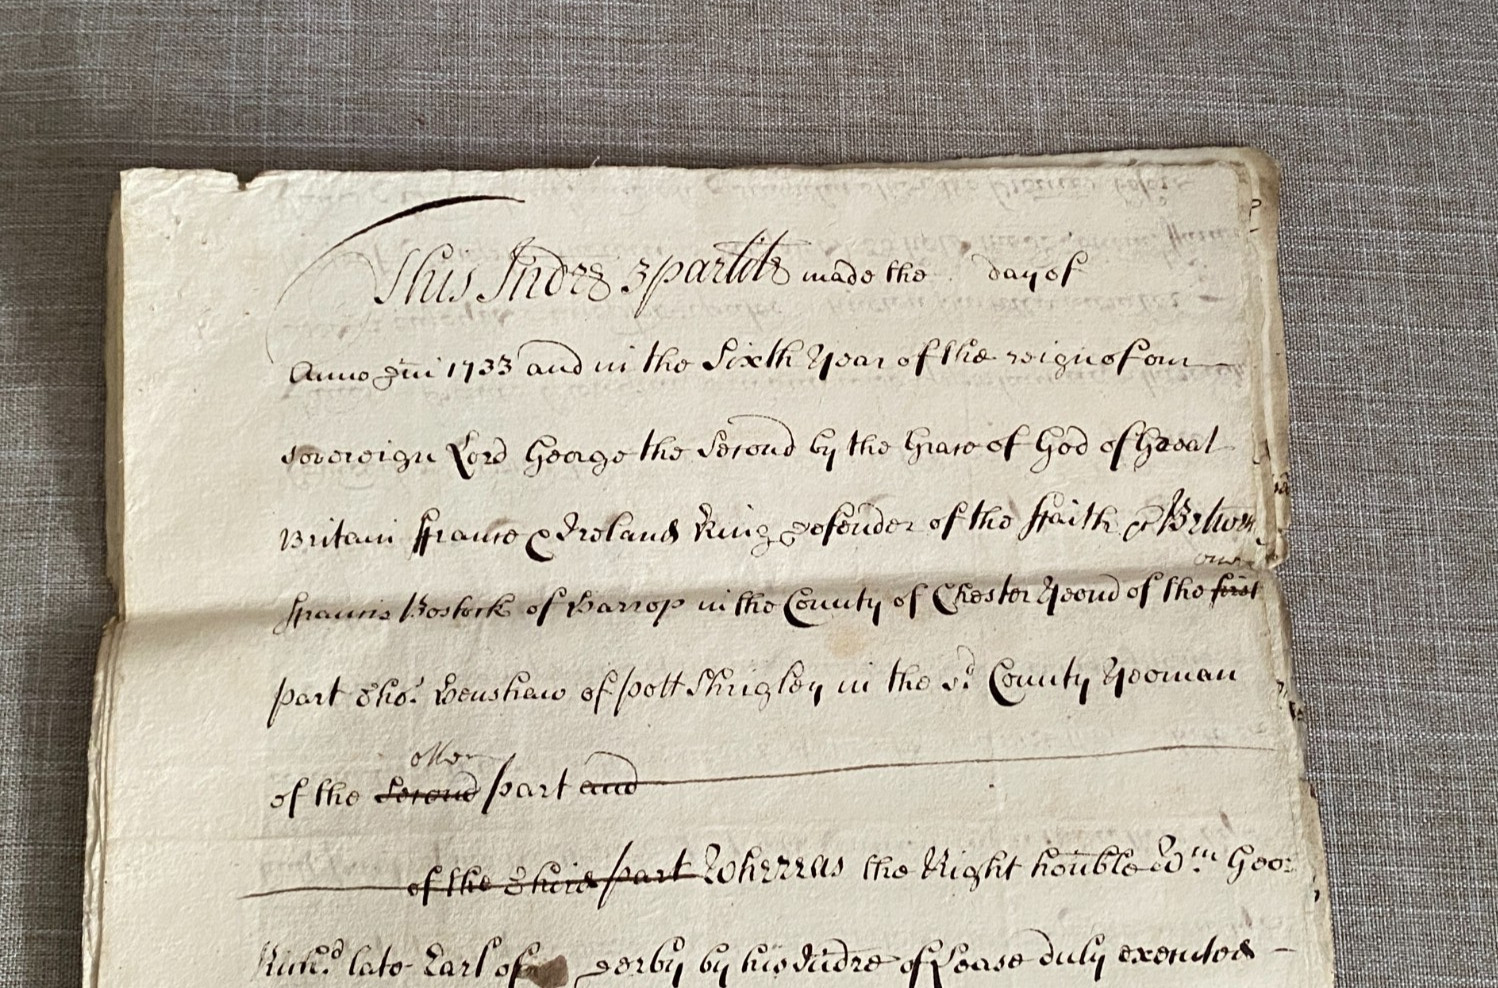 This Indre 3partite made the day of
Anno Dni 1733 and in the Sixth Year of the reign of our
Sovereign Lord George the Second by the Grace of God of Great
Britain ffrance & Ireland King Defender of the ffaith &c Betwen
one
ffrancis Bostock of in the County of Chester Yeom̄ of the first
part Tho.s Henshaw of pott Shrigley in the s.d County Yeoman
other
of the Second part and
of the Third part Whereas the Right honble W.m Geo:
Rich.d late Earl of Derby by his Indre of Lease duly executed